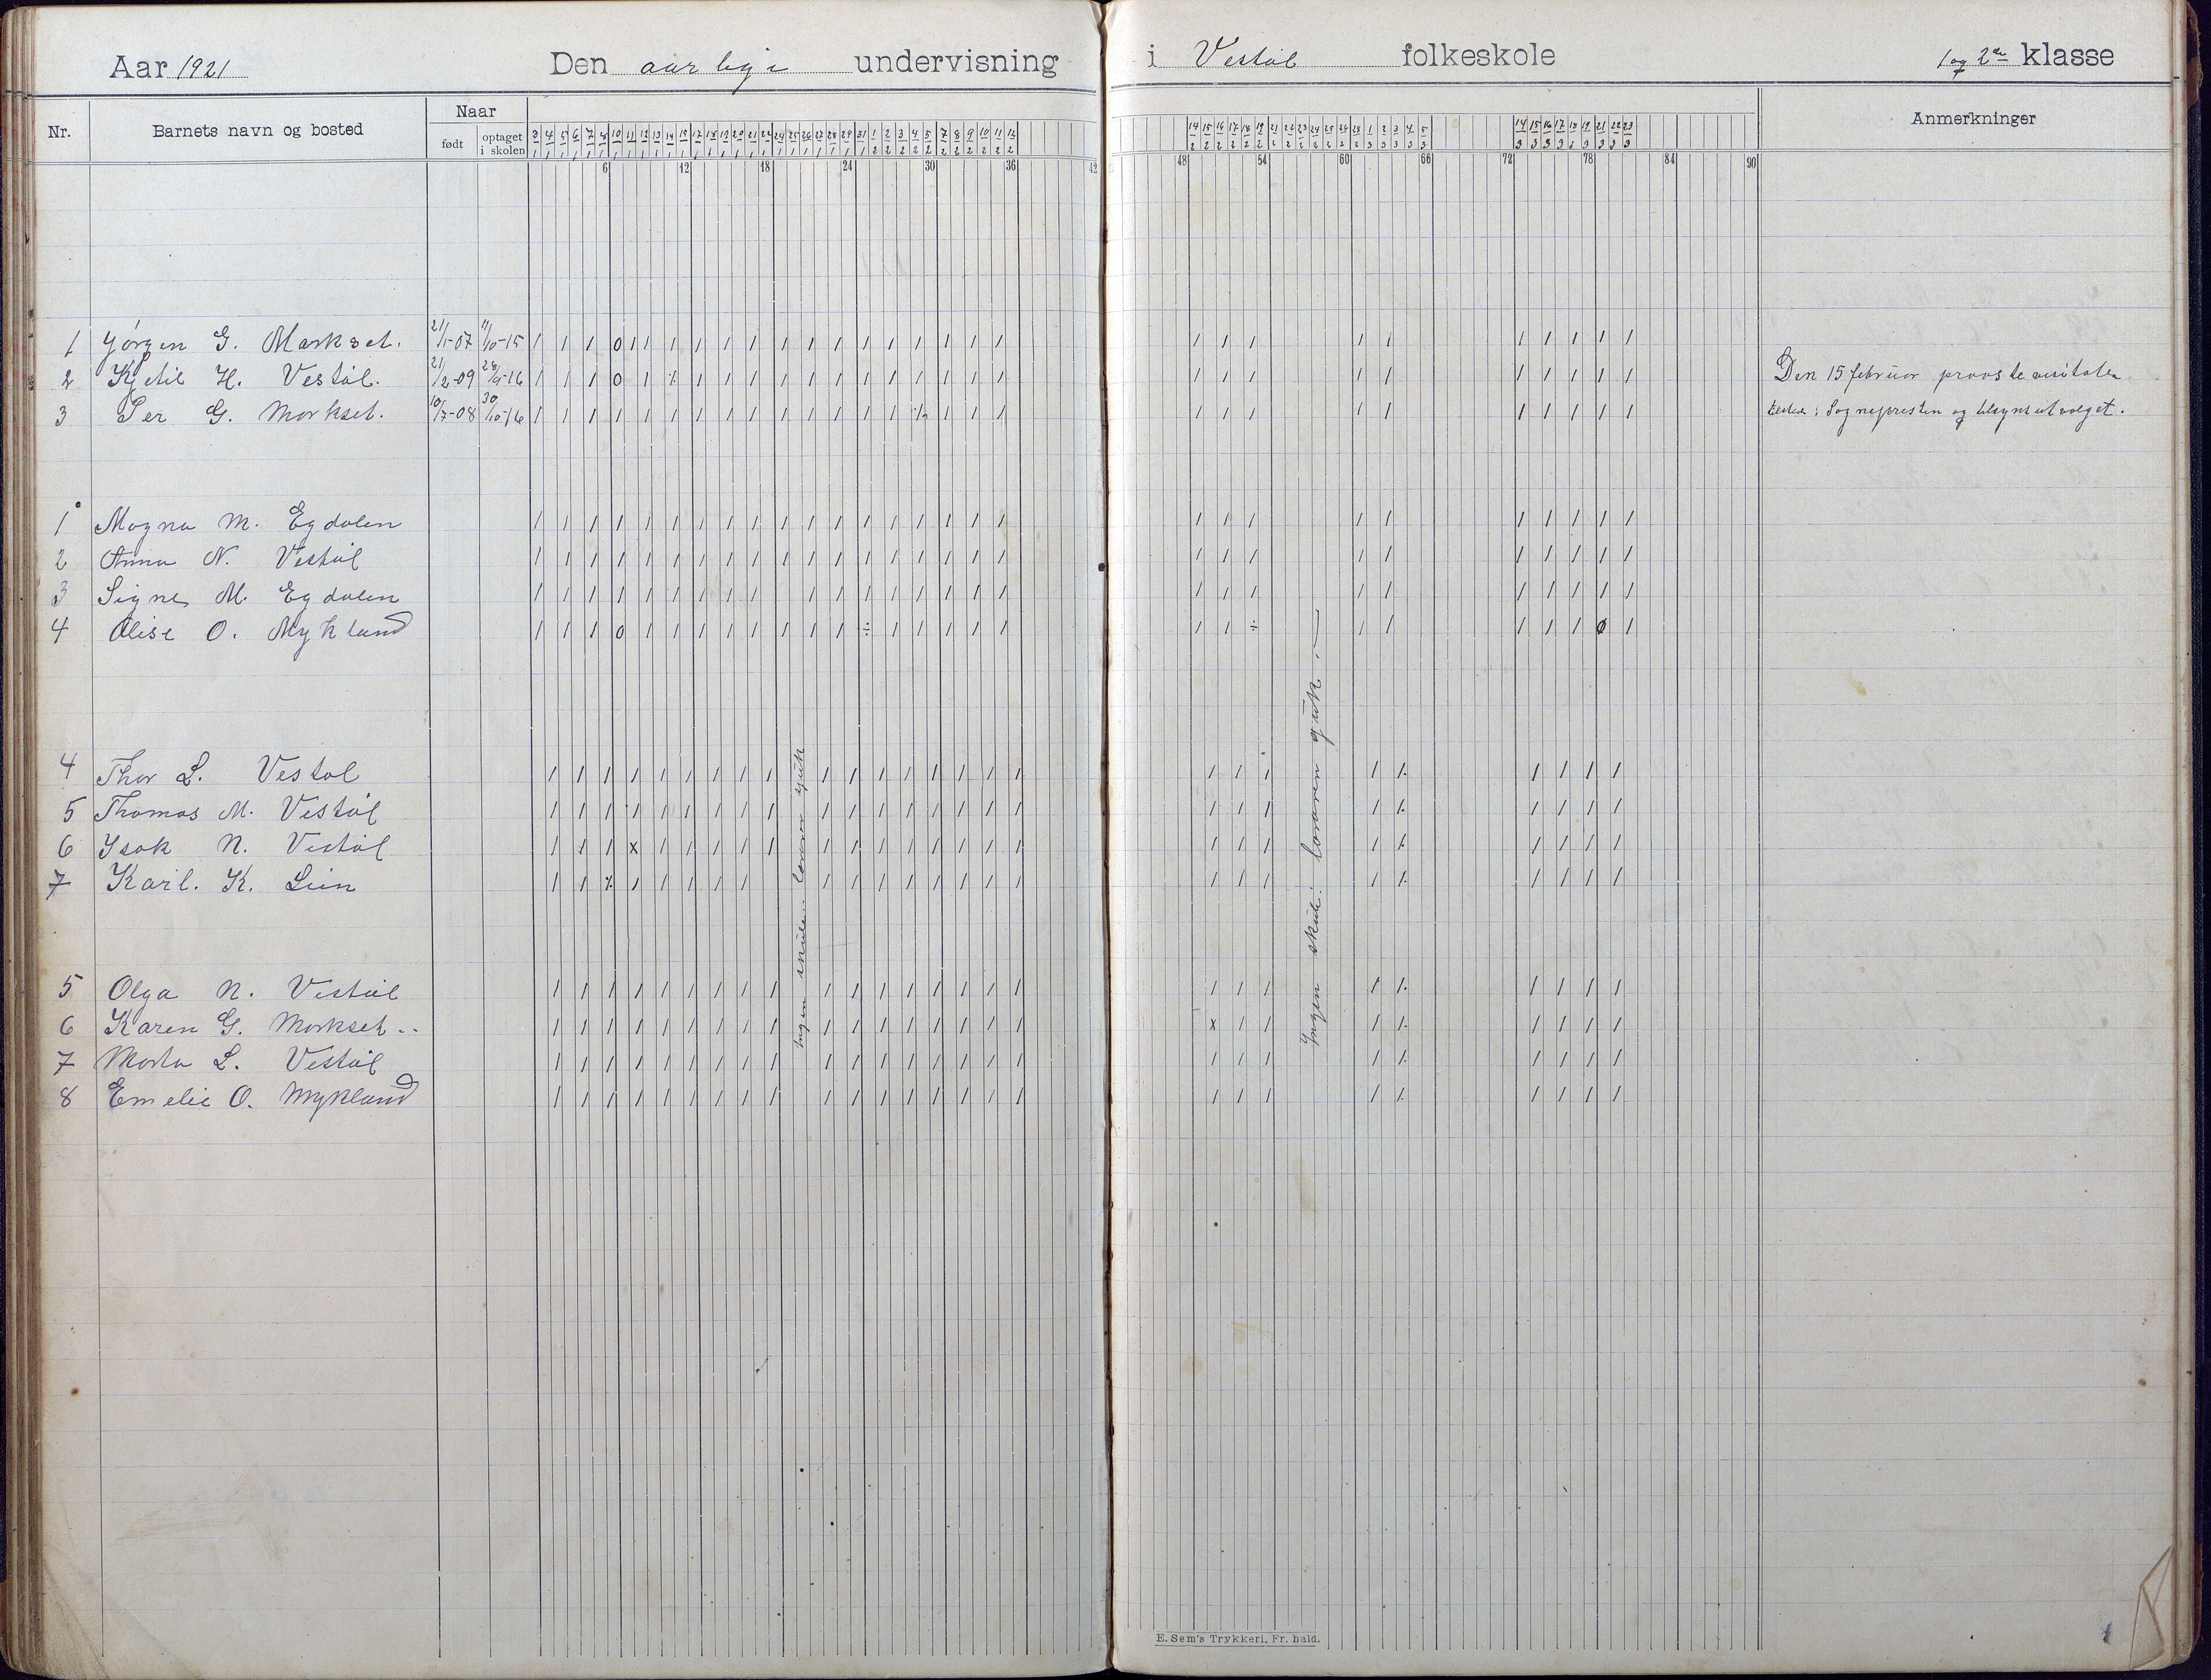 Aar 1921 Den aarlige undervisning i Vestøl folkeskole 1 og 2den klasse
Nr. Barnets navn og bosted Naar Anmerkninger
født optaget i skolen
6 12 18 24 30 36 42 48 54 60 66 72 78 84 90
1 Jørgen G. Markset. 21/1-07 11/10-15
2 Kjetil H. Vestøl. 21/2-09 28/9-16 Den 15 februar
3 Per G. Morkset. 10/7-08 30/10-16 Sognepresten og tilsynsutvalget.
1 Magna M. Egdalen
2 Anna N. Vestøl
3 Signe M. Egdalen
4 Olise O. Mykland
4 Thor L. Vestøl
5 Thomas M. Vestøl
6 Isak N. Vestøl
7 Karl. K. Lien
5 Olga N. Vestøl
6 Karen G. Morkset..
7 Marta L. Vestøl
8 Emelie O. Mykland
Ingen skule: læraren sjuk
Ingen skule: læraren sjuk.
E. Sem's Trykkeri, Fr. hald.